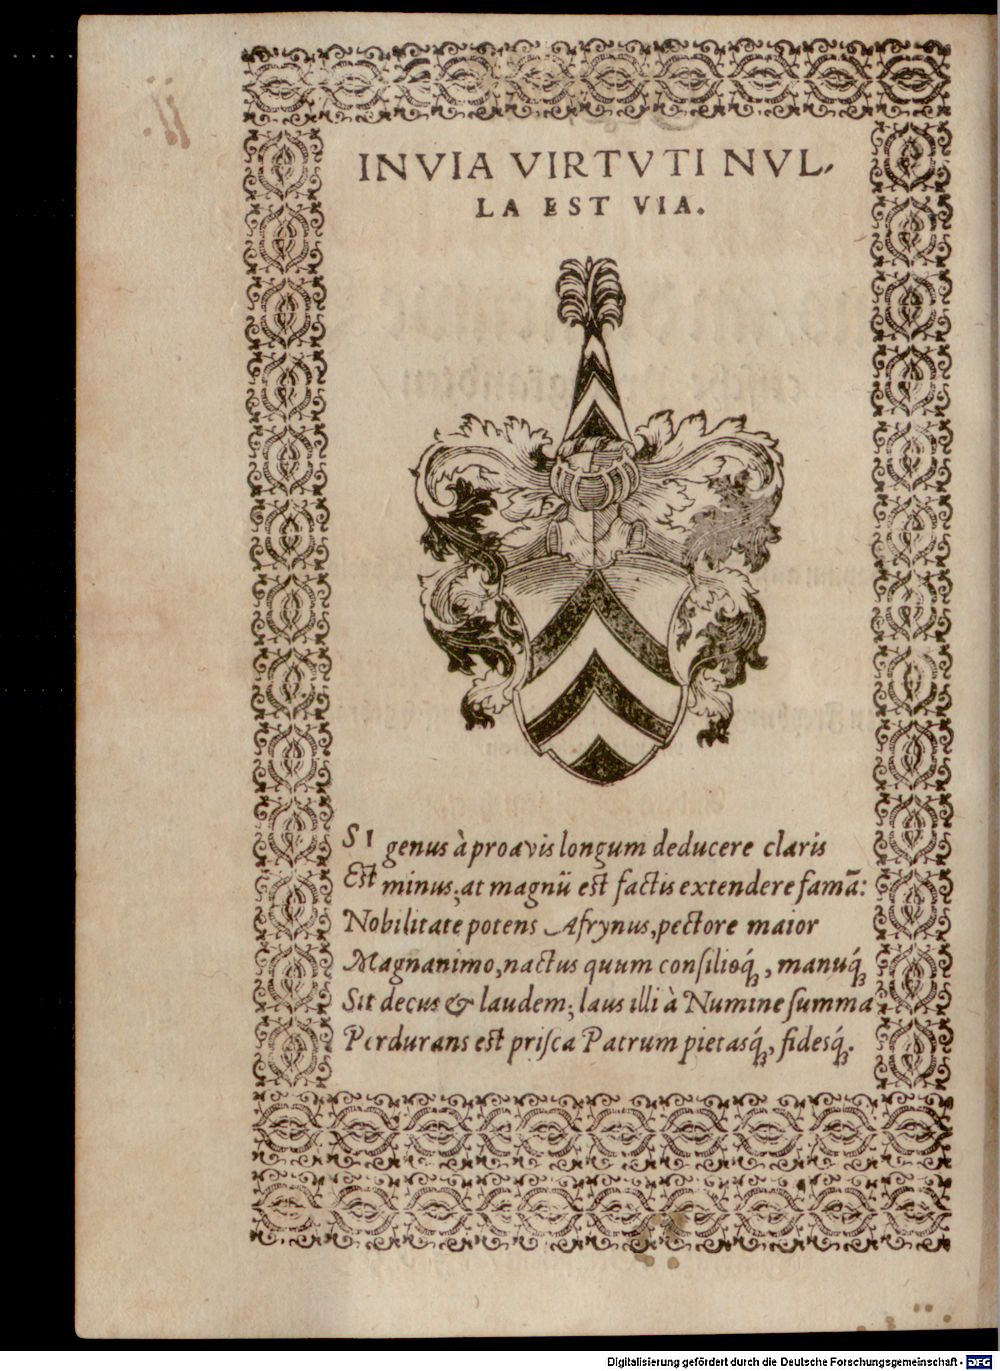 INVIA VIRTVTI NVL-
LA EST VIA.
SI genus à proavis longum deducere claris
Est minus; at magnū est factis extendere famā:
Nobilitate potens Afrynus, pectore maior
Magnanimo, nactus quum consilioq́;, manuq́;
Sit decus & laudem; laus illi à Numine summa
Perdurans est prisca Patrum pietasq́;, fidesq́;.
Digitalisierung gefördert durch die Deutsche Forschungsgemeinschaft - DFG